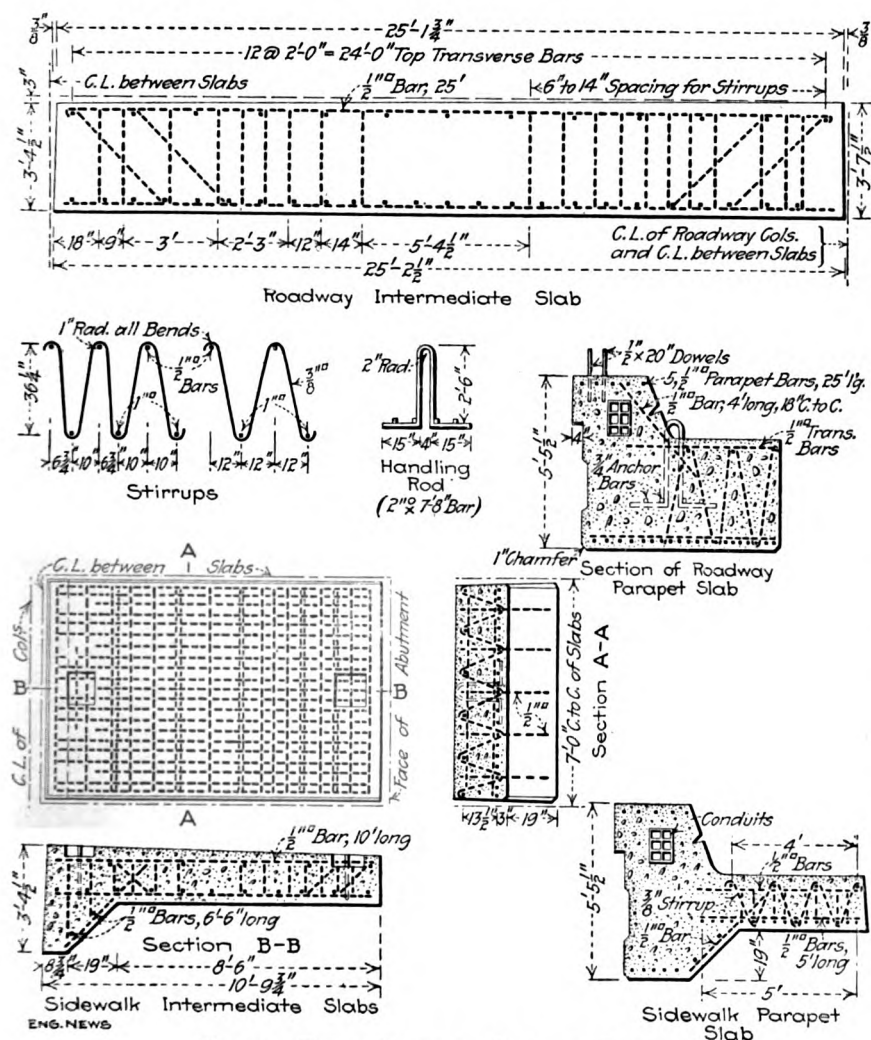 3/8"
25'-1 3/4"
3/8"
12 @ 2'-0" = 24'-0" Top Transverse Bars
3"
C.L. between Slabs
1/2"□ Bar, 25'
6" to 14" Spacing for Stirrups
3'-4 1/2"
3'-7 1/2"
18" 9" 3' 2'-3" 12" 14" 5'-4 1/2"
C.L. of Roadway Cols.
and C.L. between Slabs
25'-2 1/2"
Roadway Intermediate Slab
1" Rad. all Bends
1/2"□
Bars
3/8"□
1"□
1"□
36 1/4"
6 3/4" 10" 6 3/4" 10" 10" 12" 12" 12"
Stirrups
2" Rad.
2'-6"
15" 4" 15"
Handling
Rod
(2"□ x 7'-8" Bar)
1/2" x 20" Dowels
5, 1/2"□ Parapet Bars, 25' l'g.
1/2"□ Bar, 4' long, 18" C. to C.
1/2"□ Trans.
Bars
3/4" Anchor
Bars
4"
5'-5 1/2"
1" Chamfer
Section of Roadway
Parapet Slab
A
C.L. between Slabs
C.L. of Cols.
B
B
Face of Abutment
A
1/2"□
7'-0" C. to C. of Slabs
Section A-A
13 1/2" 3" 19"
1/2"□ Bar, 10' long
3'-4 1/2"
1/2"□ Bars, 6'-6" long
Section B-B
8 3/4" 19" 8'-6"
10'-9 3/4"
Sidewalk Intermediate Slabs
ENG. NEWS
Conduits
4'
1/2"□ Bars
3/8" Stirrup
1/2"□ Bar
1/2"□ Bars,
5' long
5'-5 1/2"
19"
5'
Sidewalk Parapet
Slab